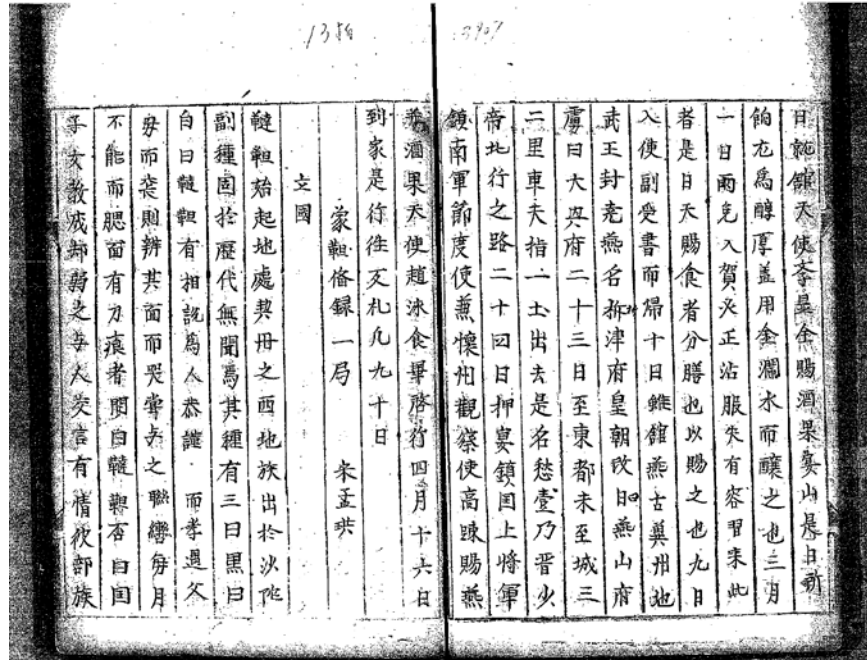 1386
3907
日就館天使李显全賜酒果宴山是日所
餉尤為醇厚盖用金瀾水而釀之也三月
一日兩免入賀次正沾服失有容習来此
者是日天賜食者分膳也以賜之也九日
入使副受書而帰十日離館燕古冀州地
武王封尭燕名析津府皇朝改曰燕山府
虜曰大興府二十三日至東都未至城三
二里車夫指一土出去是名愁臺乃晋少
帝北行之路二十四日押宴鎮国上將軍
鎮南軍節度使兼懷州觀察使高踈賜燕
并酒果天使趙泳食畢啓行四月十六日
到家是行往交札凡九十日
蒙韃俻録一局 宋孟珙
立國
韃靼始起地處契丹之西地族出於沙陀
副種固於歴代無聞焉其種有三曰黒曰
白曰韃靼有相説為人恭謹 而孝遇父
毋而喪則辨其面而哭嘗与之聯轡每月
不能而腮面有刀痕者問曰韃靼否曰国
子女教成却弱之与人交言有情彼部族